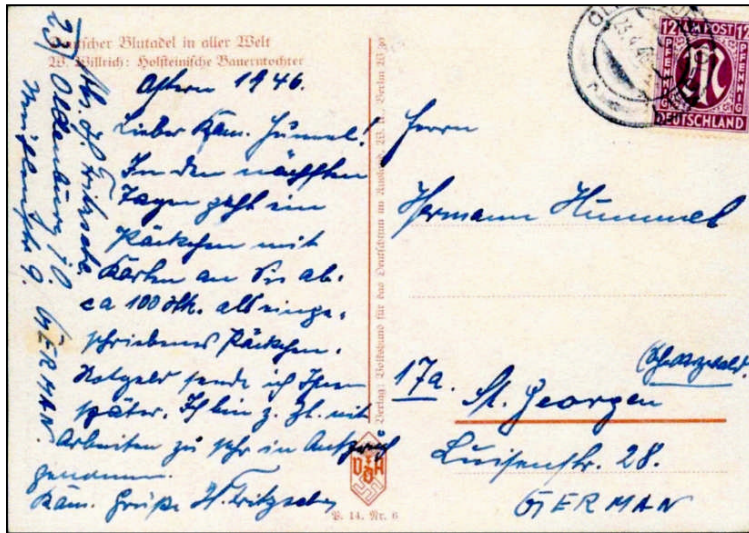 Deutscher Blutadel in aller Welt
W. Willrich: Holsteinische Bauerntochter
Ostern 1946.
Lieber Kam. Hummel!
In den nächsten
Tagen geht ein
Päckchen mit
Karten an Sie ab.
ca 100 Stk. als einge-
schriebenes Päckchen.
Notgeld sende ich Ihnen
später. Ich bin z. Zt. mit
Arbeiten zu sehr in Anspruch
genommen.
Kam. Grüße H. Fritzsche
Abs. H. Fritzsche
23) Oldenburg i/O.
9. GERMAN.
Verlag: Volksbund für das Deutschtum im Ausland
VDA
P. 14. Nr. 6
12 AM POST 12
PFENNIG
PFENNIG
M
DEUTSCHLAND
Herrn
Hermann Hummel
17a. St. Georgen
(Schwarzwald)
Luisenstr. 28.
GERMAN